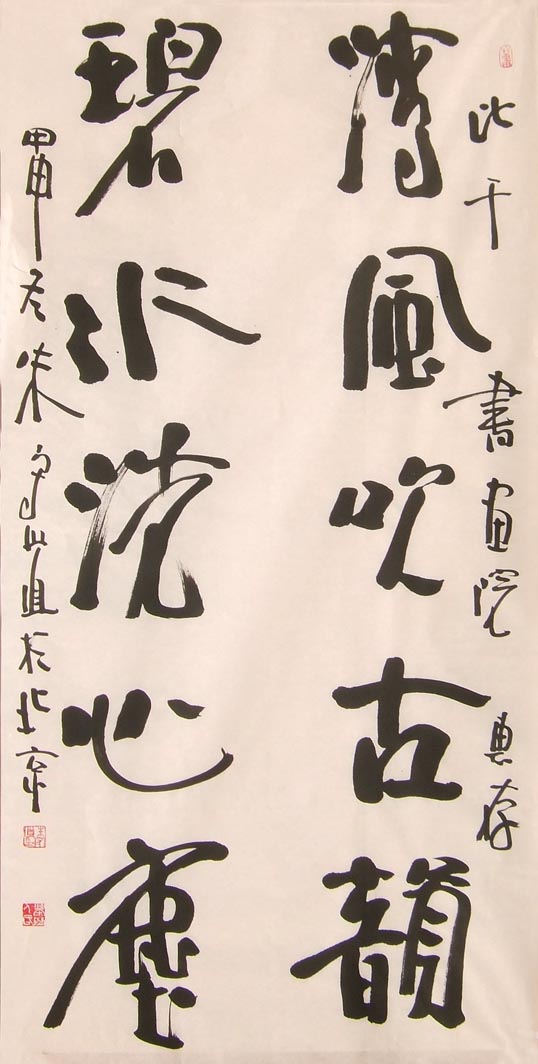 比干書画院惠存
清風吹古韻
碧水洗心塵
甲申冬朱守道於北京